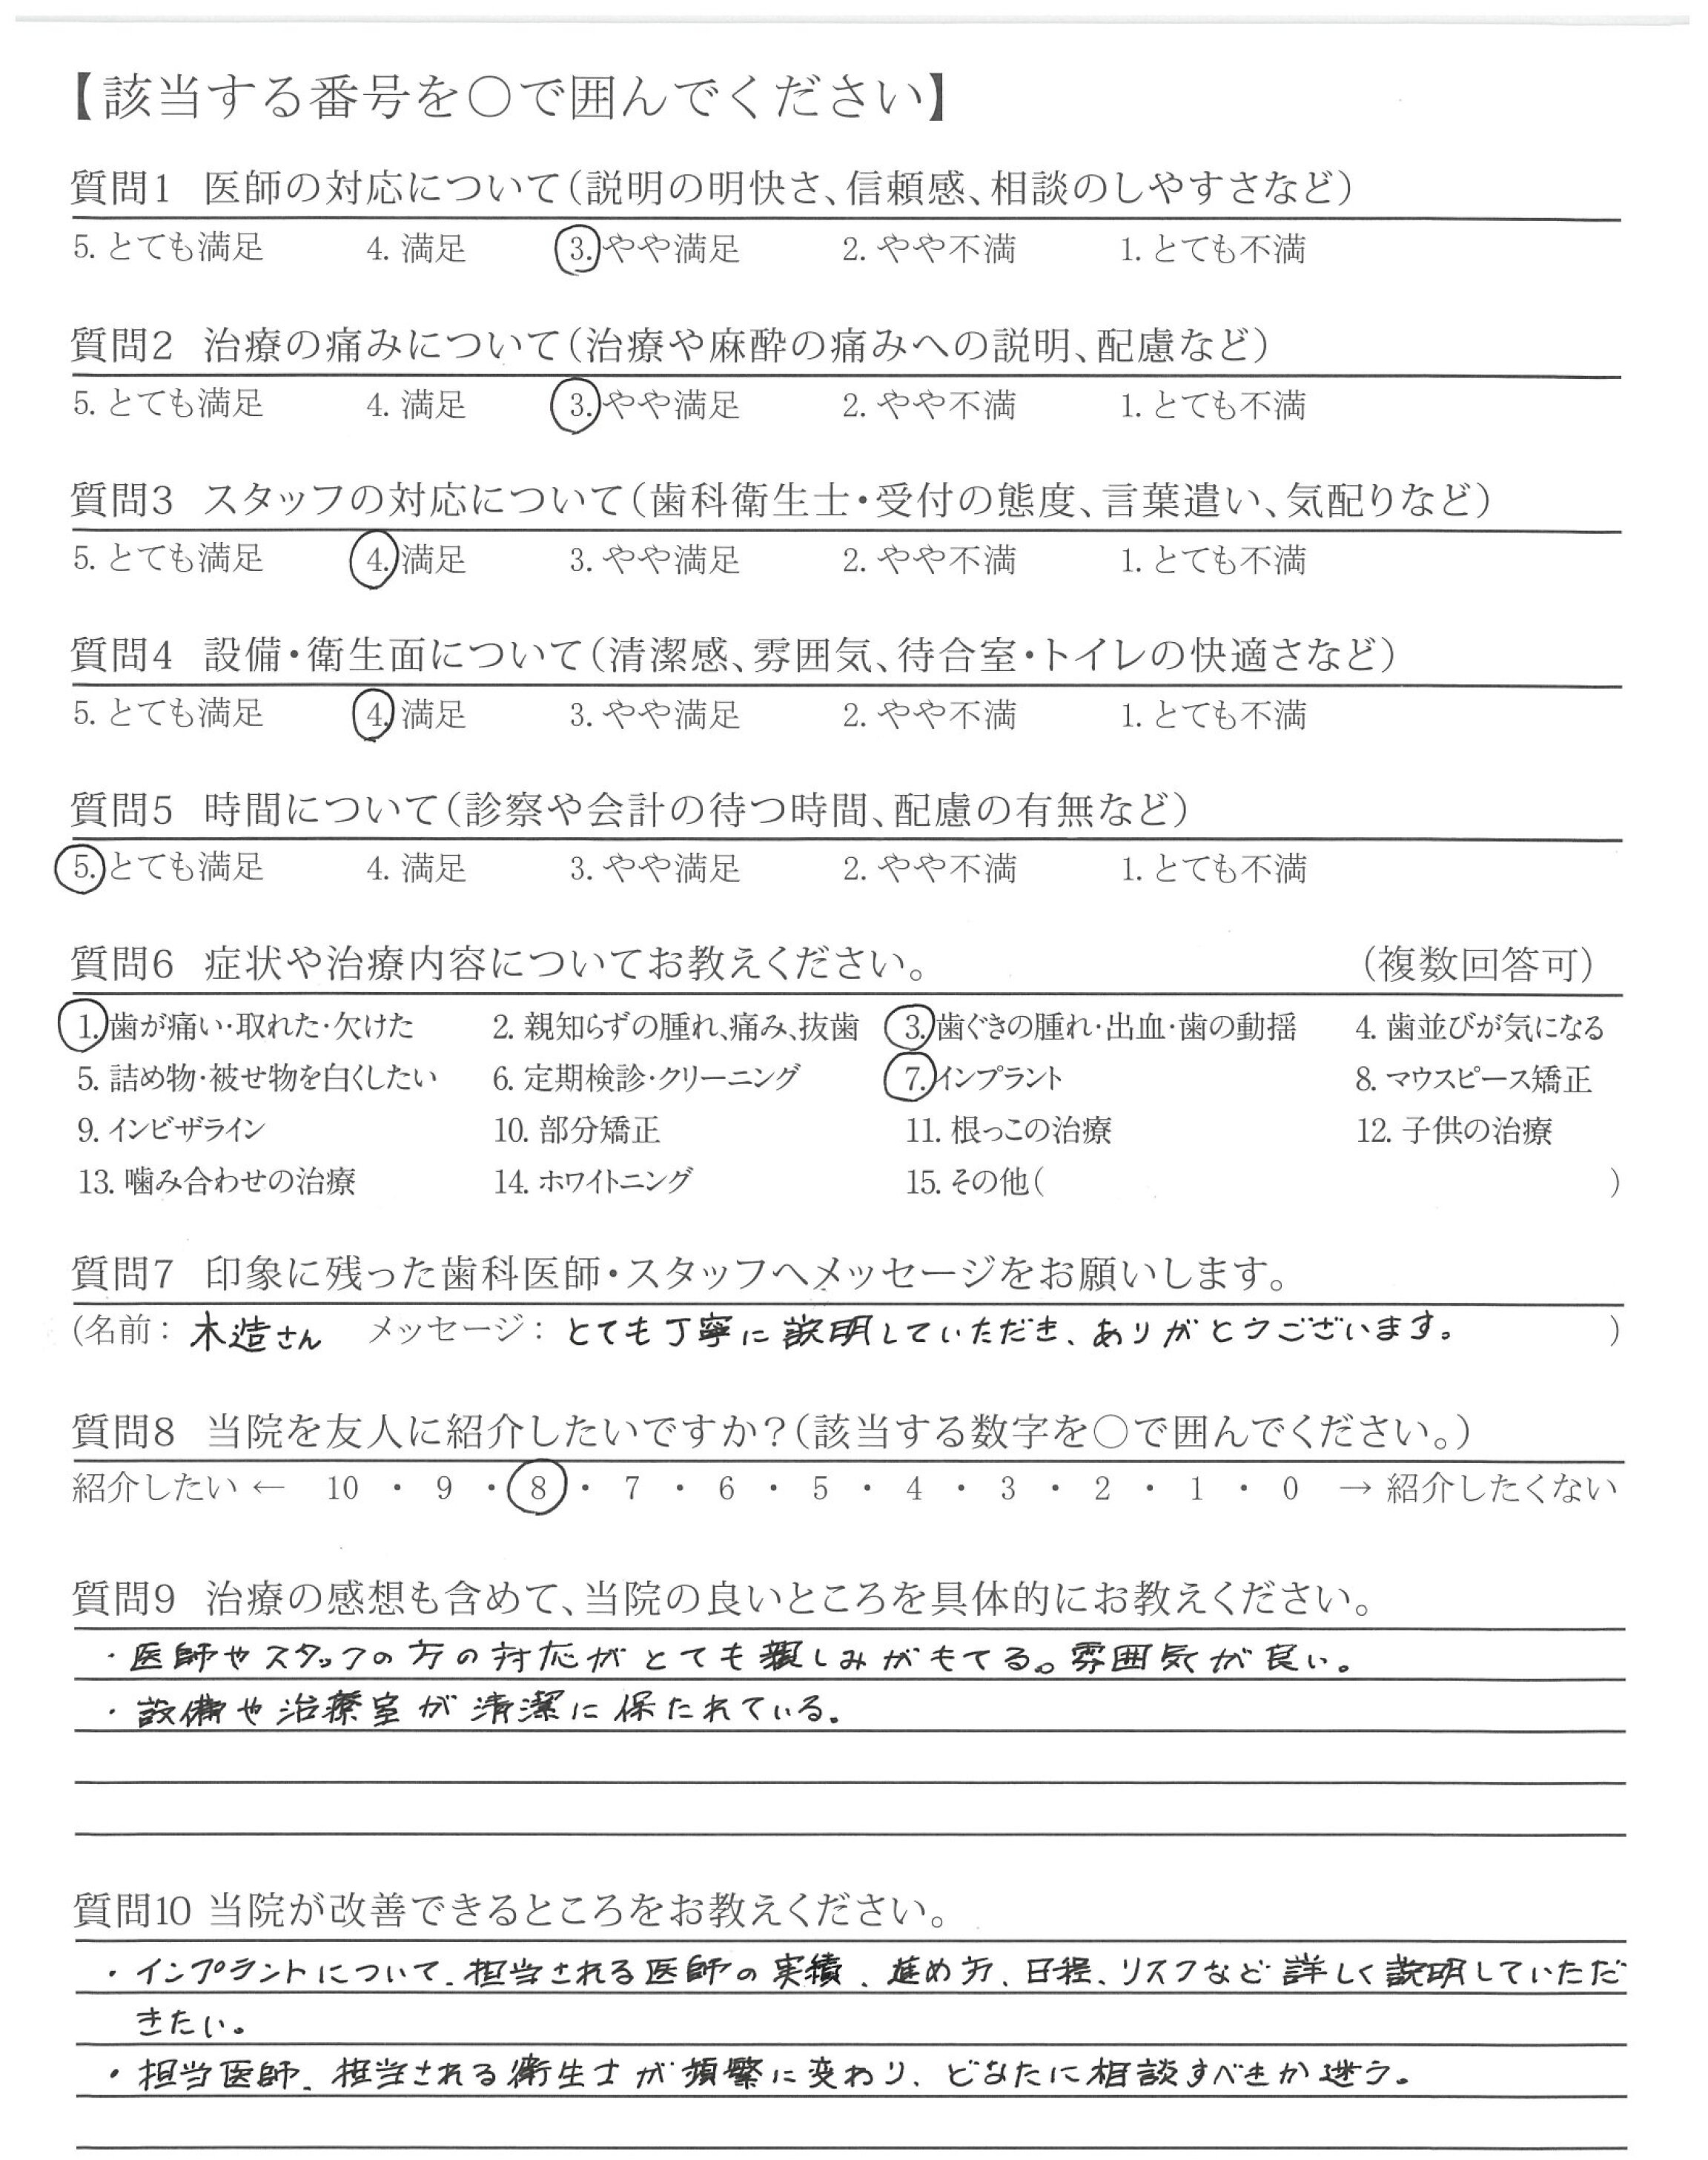 【該当する番号を○で囲んでください】
質問1 医師の対応について(説明の明快さ、信頼感、相談のしやすさなど)
5. とても満足 4. 満足 3. やや満足 2. やや不満 1. とても不満
質問2 治療の痛みについて(治療や麻酔の痛みへの説明、配慮など)
5. とても満足 4. 満足 3. やや満足 2. やや不満 1. とても不満
質問3 スタッフの対応について(歯科衛生士・受付の態度、言葉遣い、気配りなど)
5. とても満足 4. 満足 3. やや満足 2. やや不満 1. とても不満
質問4 設備・衛生面について(清潔感、雰囲気、待合室・トイレの快適さなど)
5. とても満足 4. 満足 3. やや満足 2. やや不満 1. とても不満
質問5 時間について(診察や会計の待つ時間、配慮の有無など)
5. とても満足 4. 満足 3. やや満足 2. やや不満 1. とても不満
質問6 症状や治療内容についてお教えください。 (複数回答可)
1. 歯が痛い・取れた・欠けた 2. 親知らずの腫れ、痛み、抜歯 3. 歯ぐきの腫れ・出血・歯の動揺 4. 歯並びが気になる
5. 詰め物・被せ物を白くしたい 6. 定期検診・クリーニング 7. インプラント 8. マウスピース矯正
9. インビザライン 10. 部分矯正 11. 根っこの治療 12. 子供の治療
13. 噛み合わせの治療 14. ホワイトニング 15. その他( )
質問7 印象に残った歯科医師・スタッフへメッセージをお願いします。
(名前： 木造さん メッセージ： とても丁寧に説明していただき、ありがとうございます。 )
質問8 当院を友人に紹介したいですか？(該当する数字を○で囲んでください。)
紹介したい ← 10 ・ 9 ・ 8 ・ 7 ・ 6 ・ 5 ・ 4 ・ 3 ・ 2 ・ 1 ・ 0 → 紹介したくない
質問9 治療の感想も含めて、当院の良いところを具体的にお教えください。
・医師やスタッフの方の対応がとても親しみがもてる。雰囲気が良い。
・設備や治療室が清潔に保たれている。
質問10 当院が改善できるところをお教えください。
・インプラントについて、担当される医師の実績、進め方、日程、リスクなど詳しく説明していただ
きたい。
・担当医師、担当される衛生士が頻繁に変わり、どなたに相談すべきか迷う。